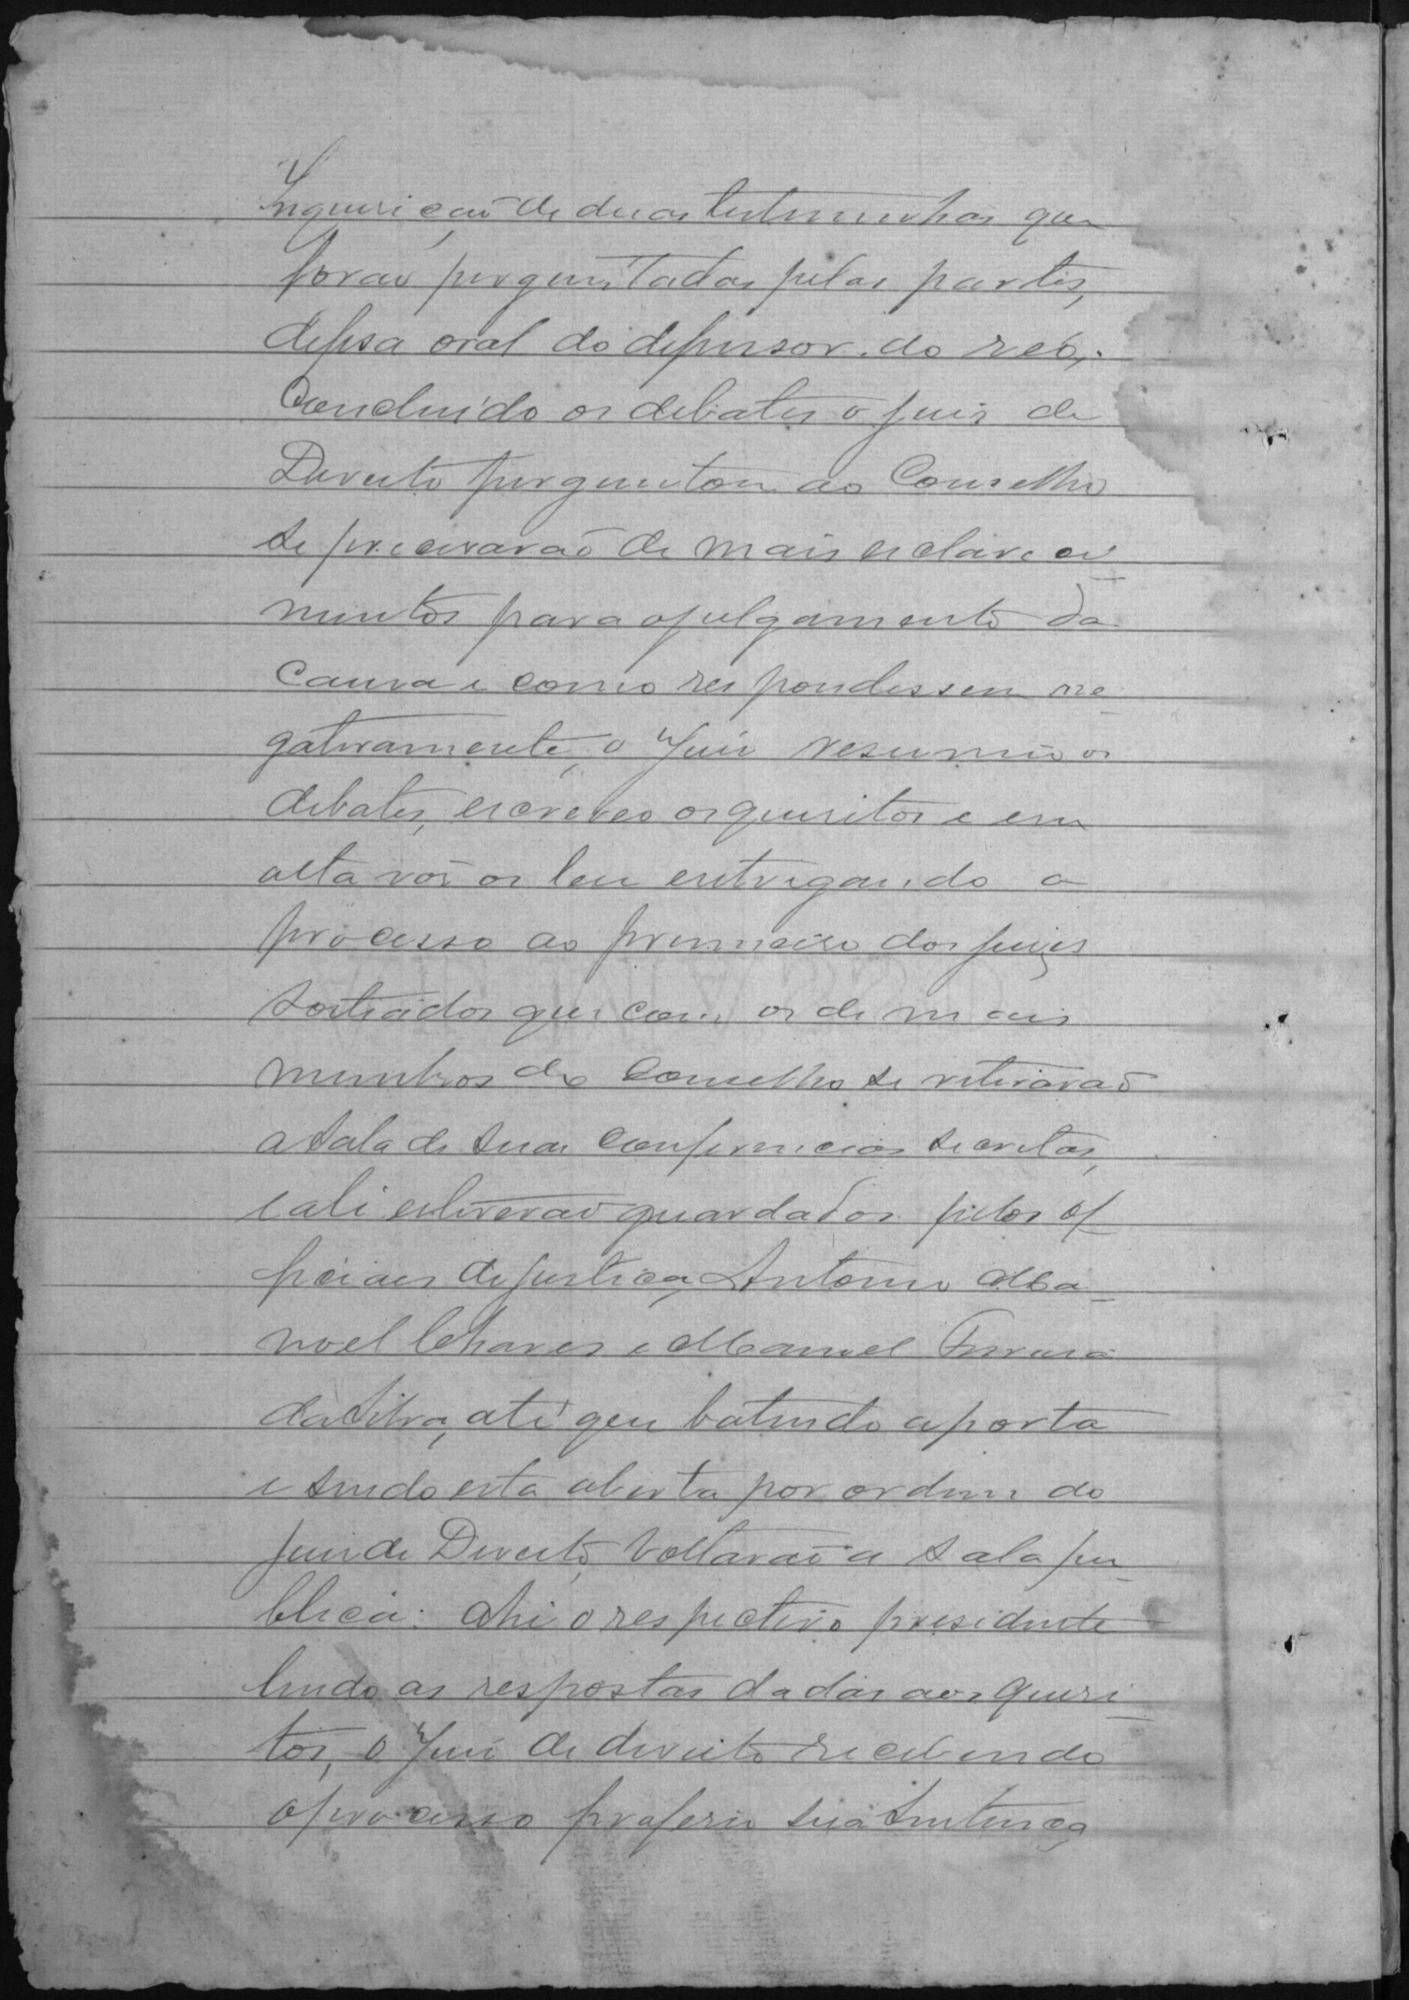 Inquerição de duas testemunhas que
forao perguntadas pelas partes,
defesa oral do defensor do reo,.
Concluido os debates o juis de
Direito perguntou ao Conselho
se precisarão de mais esclareci
mentos para o julgamento da
causa e como respondessem ne-
gativamente, o Juis resumio os
debates, escreveo os quesitos e em
alta vós os leu entregando o
processo ao primmeiro dos juizes
sorteados que com os de mais
membros do Conselho se retirarão
a sala de suas conferencias secretas,
e ali estiverão guardados pelos of-
ficiaes de justiça, Antonio Ma-
noel Chaves e Manoel Ferreira
da Silva, até que batendo a porta
e sendo esta aberta por ordem do
juis de Direito, voltarão a sala pu-
blica: Ahi o respectivo presidente
lendo as respostas dadas aos quesi-
tos, o Juis de direito recebendo
o processo proferiu sua sentença